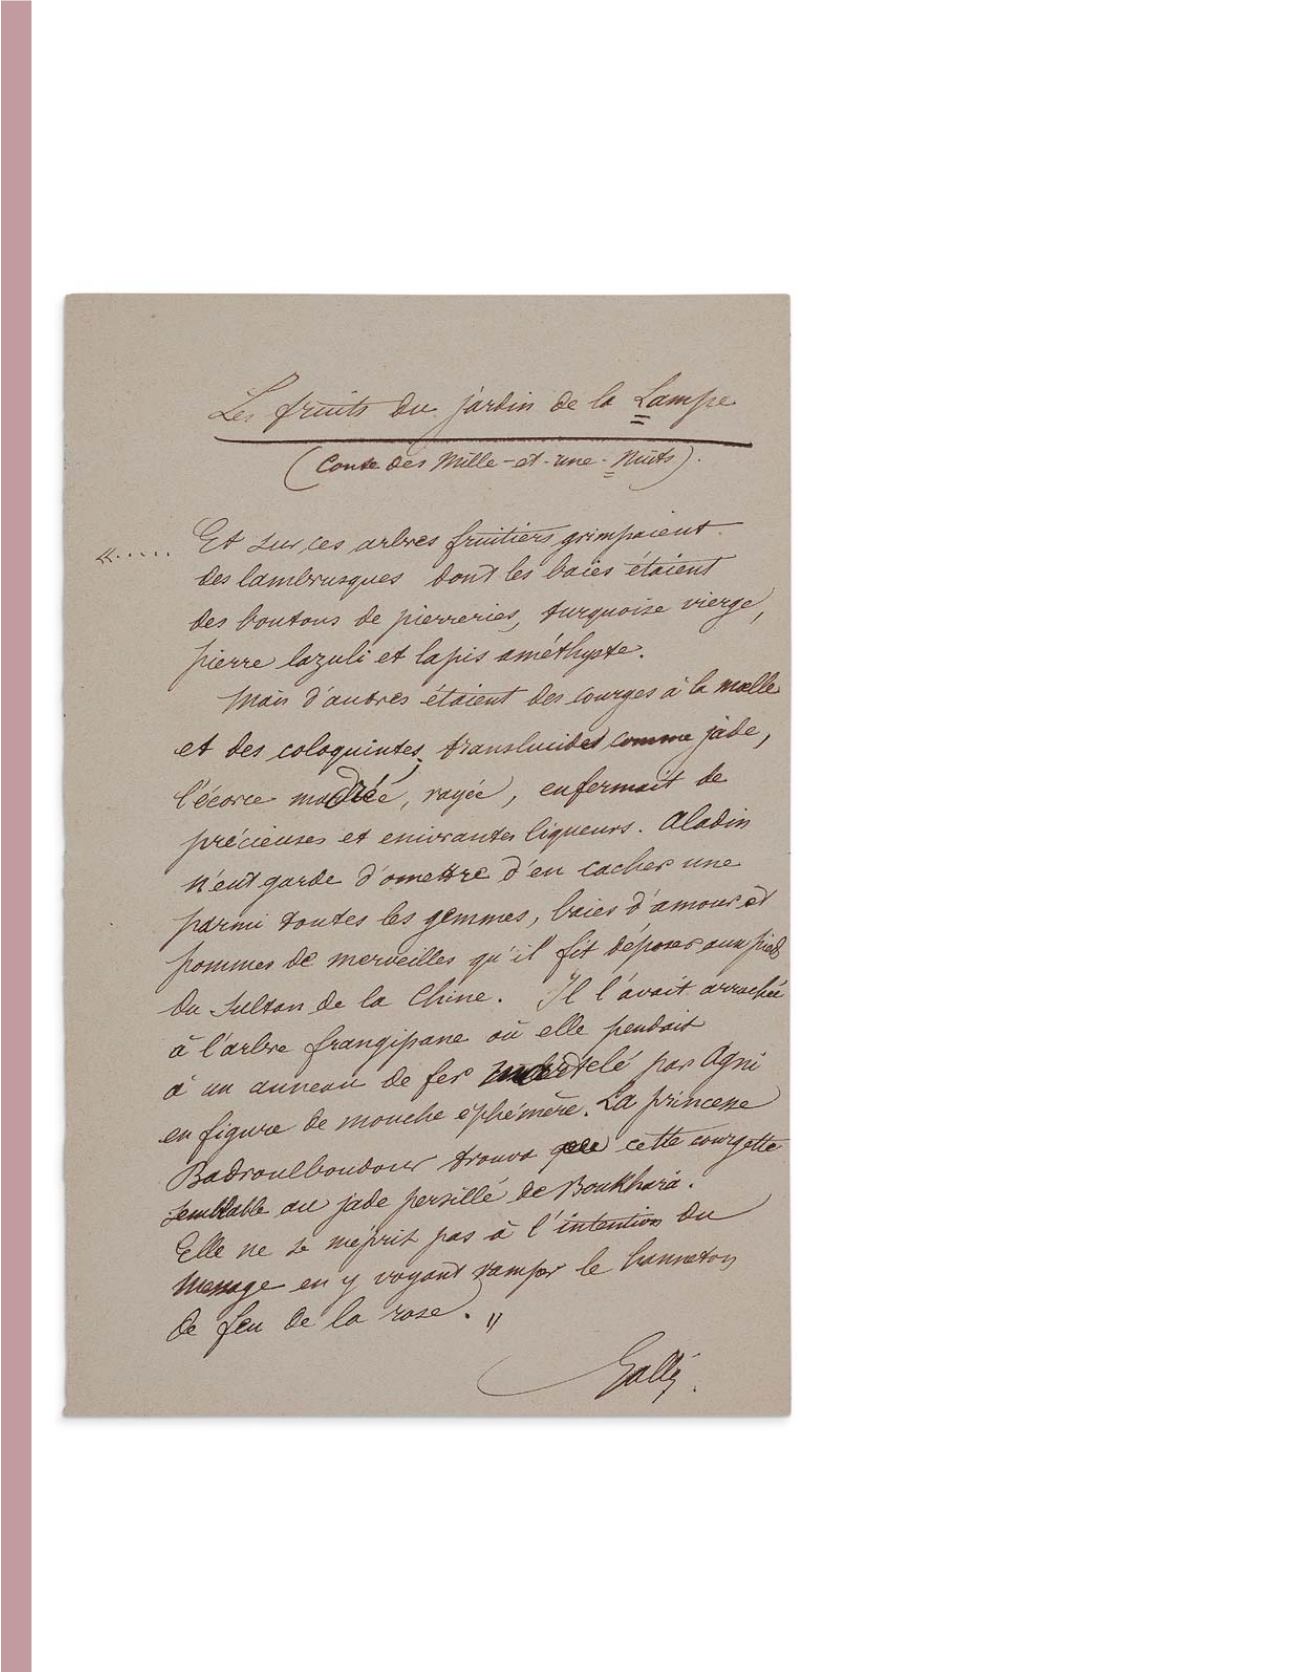 Les fruits du jardin de la Lampe
(Conte des Mille-et-une-Nuits).
«..... Et sur ces arbres fruitiers grimpaient
des lambrusques dont les baies étaient
des boutons de pierreries, turquoise vierge,
pierre lazuli et lapis améthyste.
Mais d'autres étaient des courges à la moelle
et des coloquintes, translucides comme jade,
l'écorce madrée, rayée, enfermait de
précieuses et enivrantes liqueurs. Aladin
n'eut garde d'omettre d'en cacher une
parmi toutes les gemmes, baies d'amour et
pommes de merveilles qu'il fit déposer aux pieds
du Sultan de la Chine. Il l'avait arrachée
à l'arbre frangipane où elle pendait
à un anneau de fer par Agni
en figure de mouche éphémère. La princesse
Badroulboudour trouva que cette courgette
semblable au jade persillé de Boukhara.
Elle ne se méprit pas à l'intention du
message en y voyant ramper le hanneton
de feu de la rose. »
Gallé.